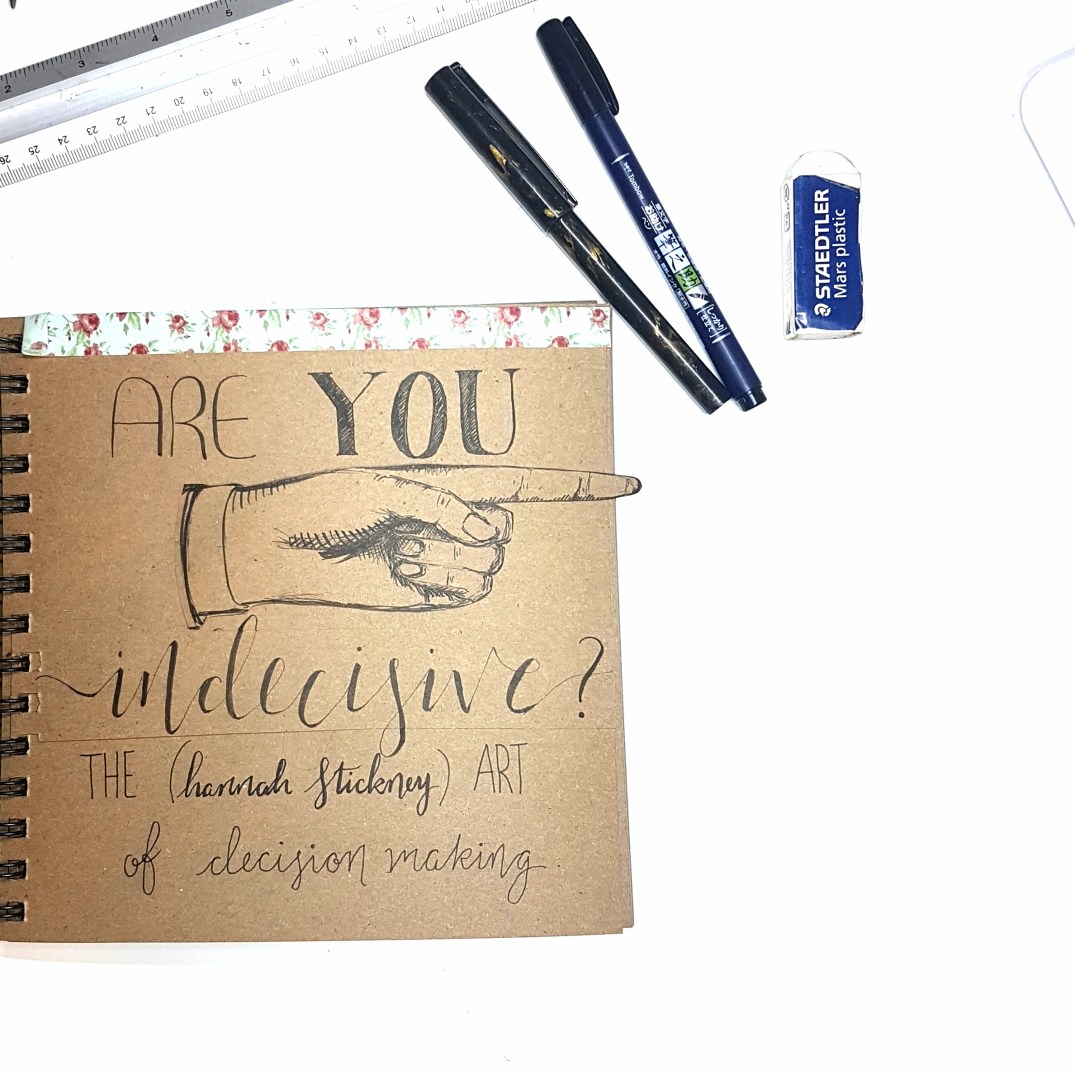 2 3 4 5
26 25 24 23 22 21 20 19 18 17 16 15 14 13 12 11 10
Tombow
STAEDTLER
Mars plastic
ARE YOU
indecisive?
THE (hannah Stickney) ART
of decision making.